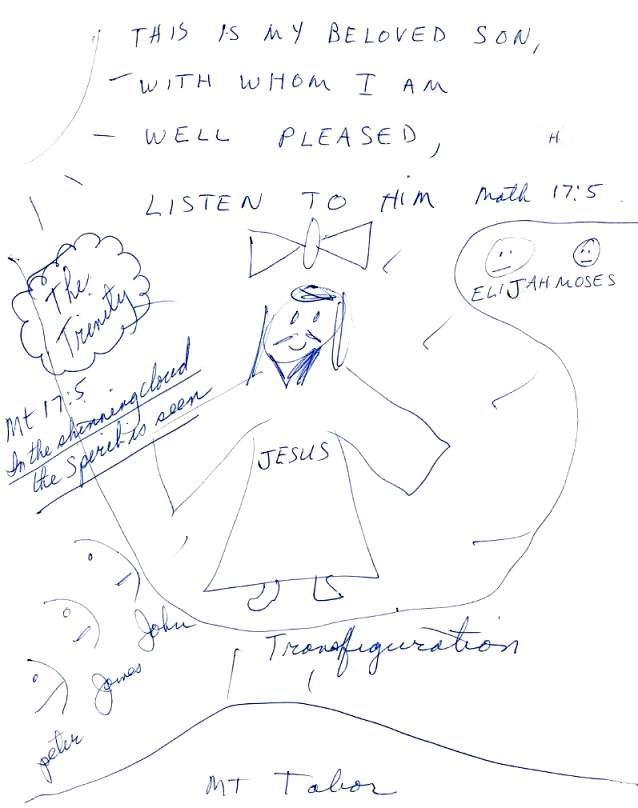 THIS IS MY BELOVED SON,
WITH WHOM I AM
WELL PLEASED,
H
LISTEN TO HIM Math 17:5
ELIJAH MOSES
The
Trinity
Mt 17:5
In the shinning cloud
the Spirit is seen
JESUS
John
James
peter
Transfiguration
MT Tabor